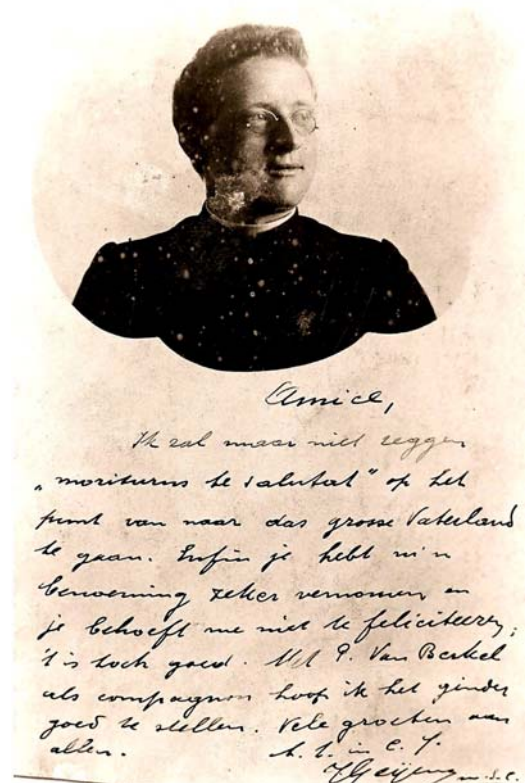 Amice,
Ik zal maar niet zeggen
„moriturus te salutat" op het
punt van naar das grosse Vaterland
te gaan. Enfin je hebt m'n
benoeming zeker vernomen en
je behoeft me niet te feliciteeren;
't is toch goed. Met P. van Berkel
als compagnon hoop ik het ginder
goed te stellen. Vele groeten aan
allen.
t. t. in C. J.
m.s.c.